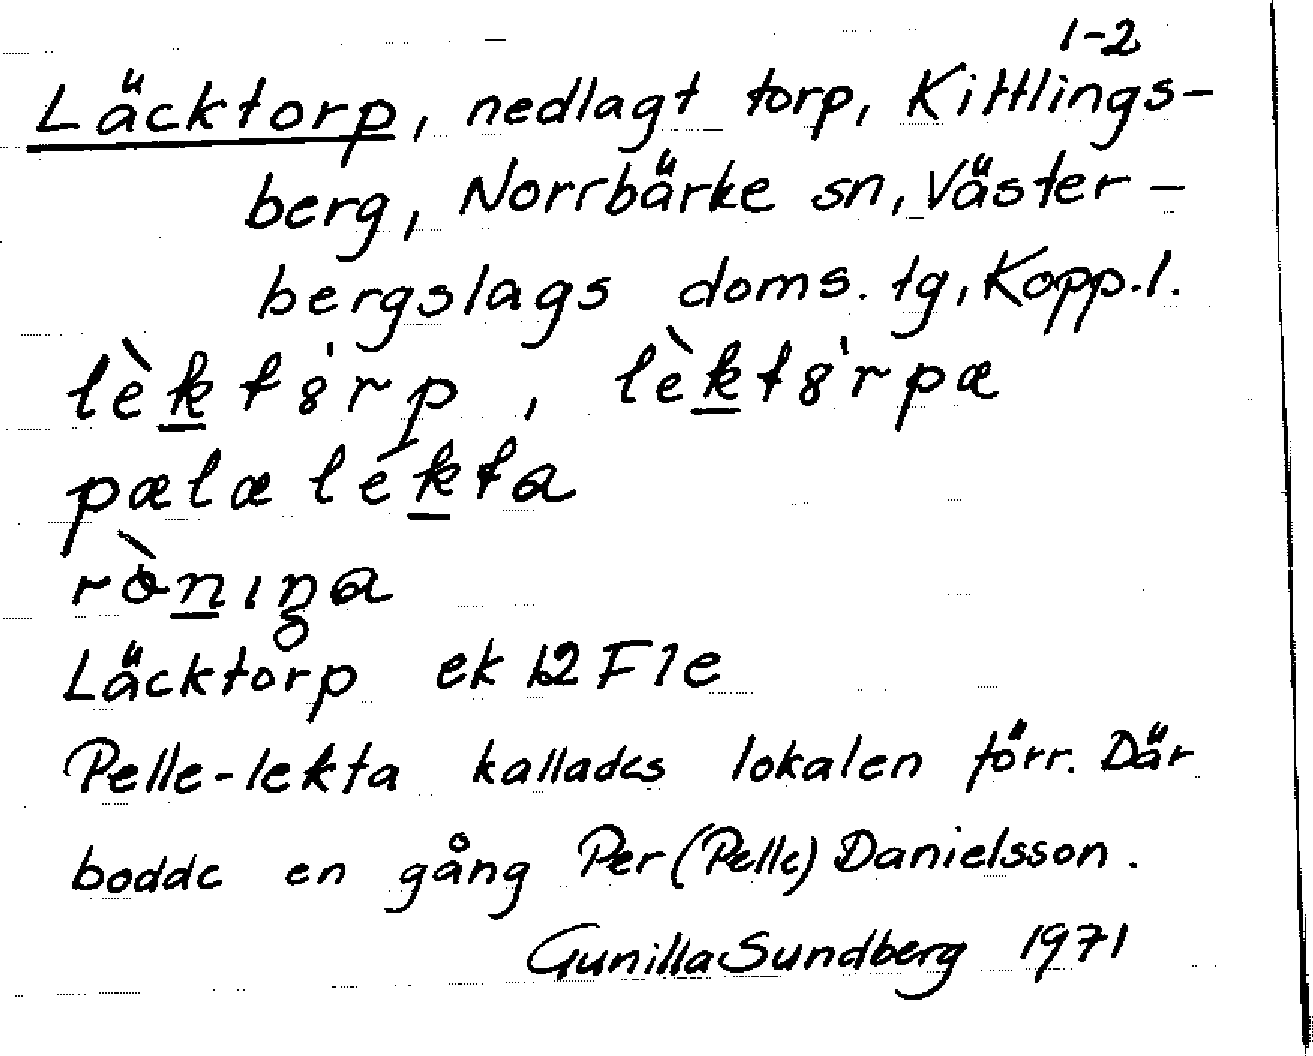 1-2
Läcktorp, nedlagt torp, Kittlings-
berg, Norrbärke sn, Väster-
bergslags doms. tg, Kopp.l.
lèktȣ̀rp, lèktȣ̀rpæ
pælæ lékta
Läcktorp ek 12 F1e
Pelle-lekta kallades lokalen förr. Där
bodde en gång Per (Pelle) Danielsson.
Gunilla Sundberg 1971